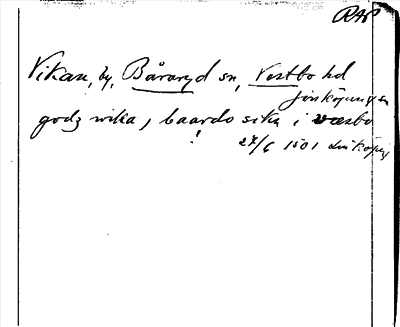 RAP
Vikan, by, Båraryd sn, Vestbo hd
Jönköpings län
godz wika, baardo sokn i væstbo
!
27/6 1501 Linköping